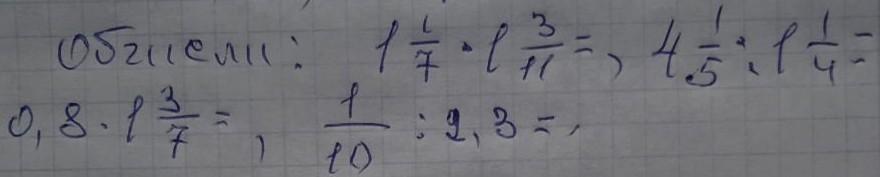 Обчисли: 1 1/7 · 1 3/11 =, 4 1/5 : 1 1/4 =
0,8 · 1 3/7 =, 1/10 : 2,3 =.